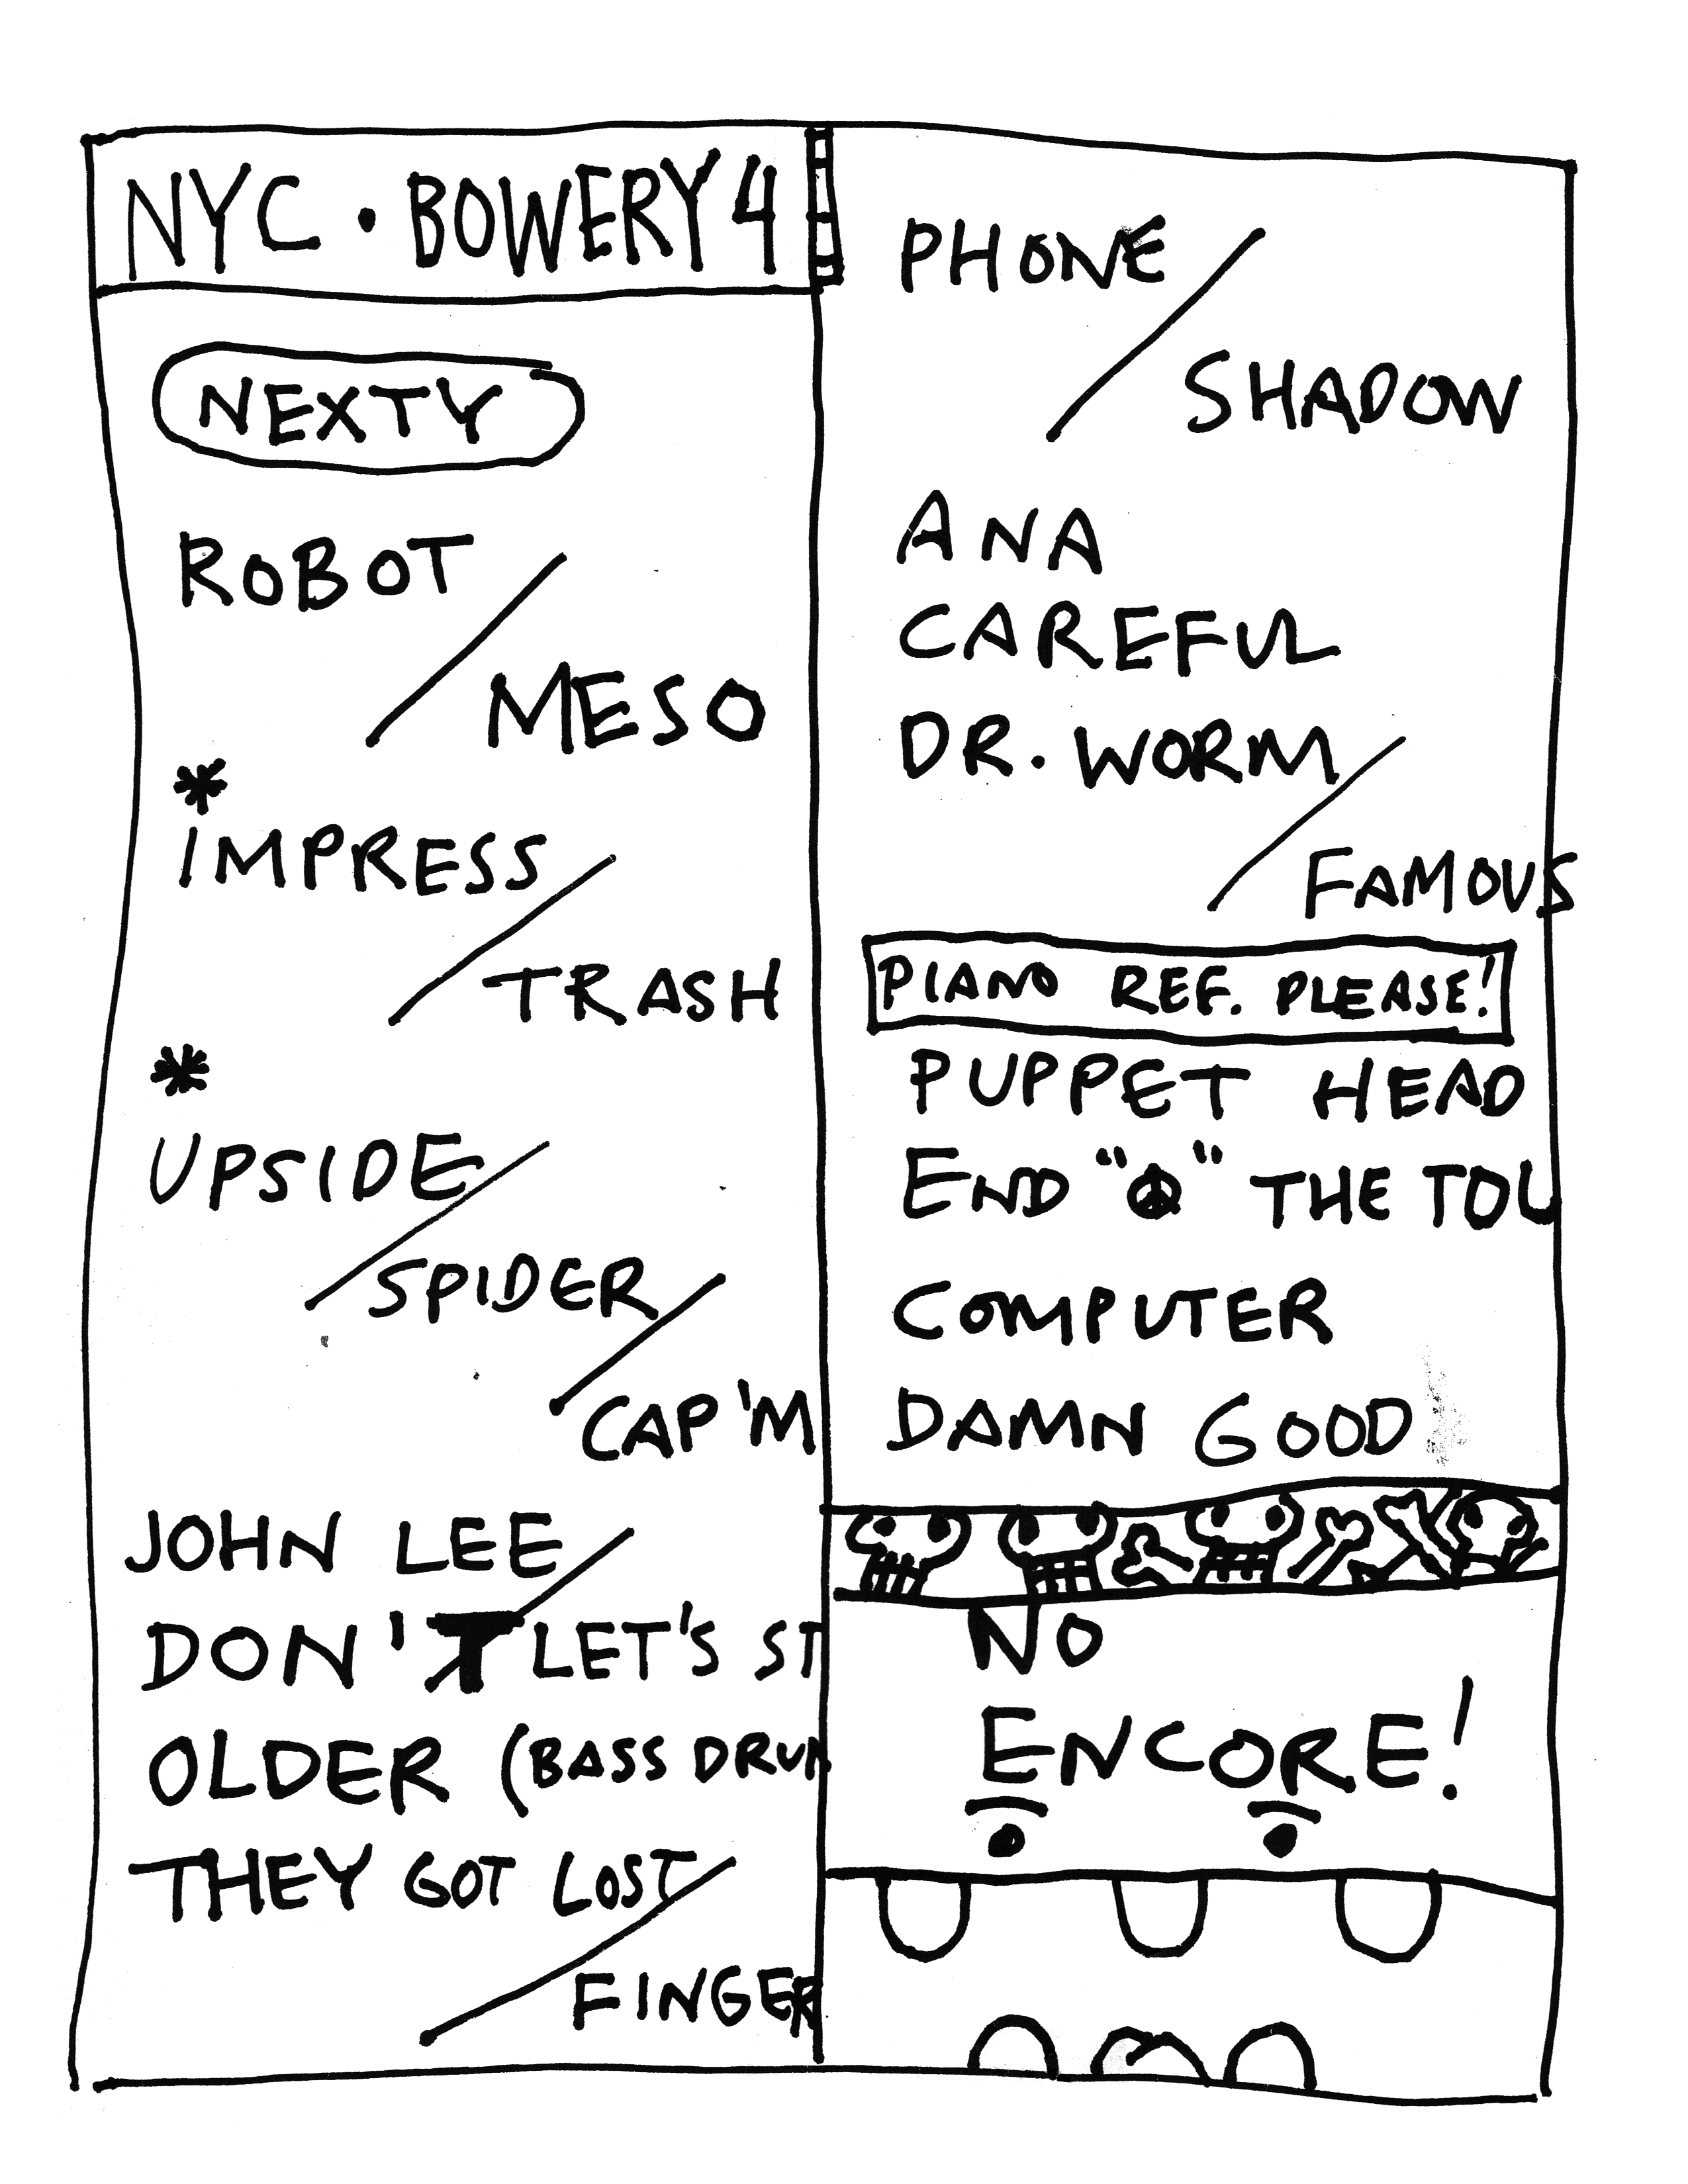 NYC • BOWERY 4
NEXTY
ROBOT /
MESO
*
IMPRESS /
TRASH
*
UPSIDE /
SPIDER /
CAP'M
JOHN LEE /
DON'T LET'S ST
OLDER (BASS DRUM
THEY GOT LOST /
FINGER
PHONE /
SHADOW
ANA
CAREFUL
DR. WORM /
FAMOUS
PIANO REF. PLEASE!
PUPPET HEAD
END " " THE TOU
COMPUTER
DAMN GOOD
NO
ENCORE!